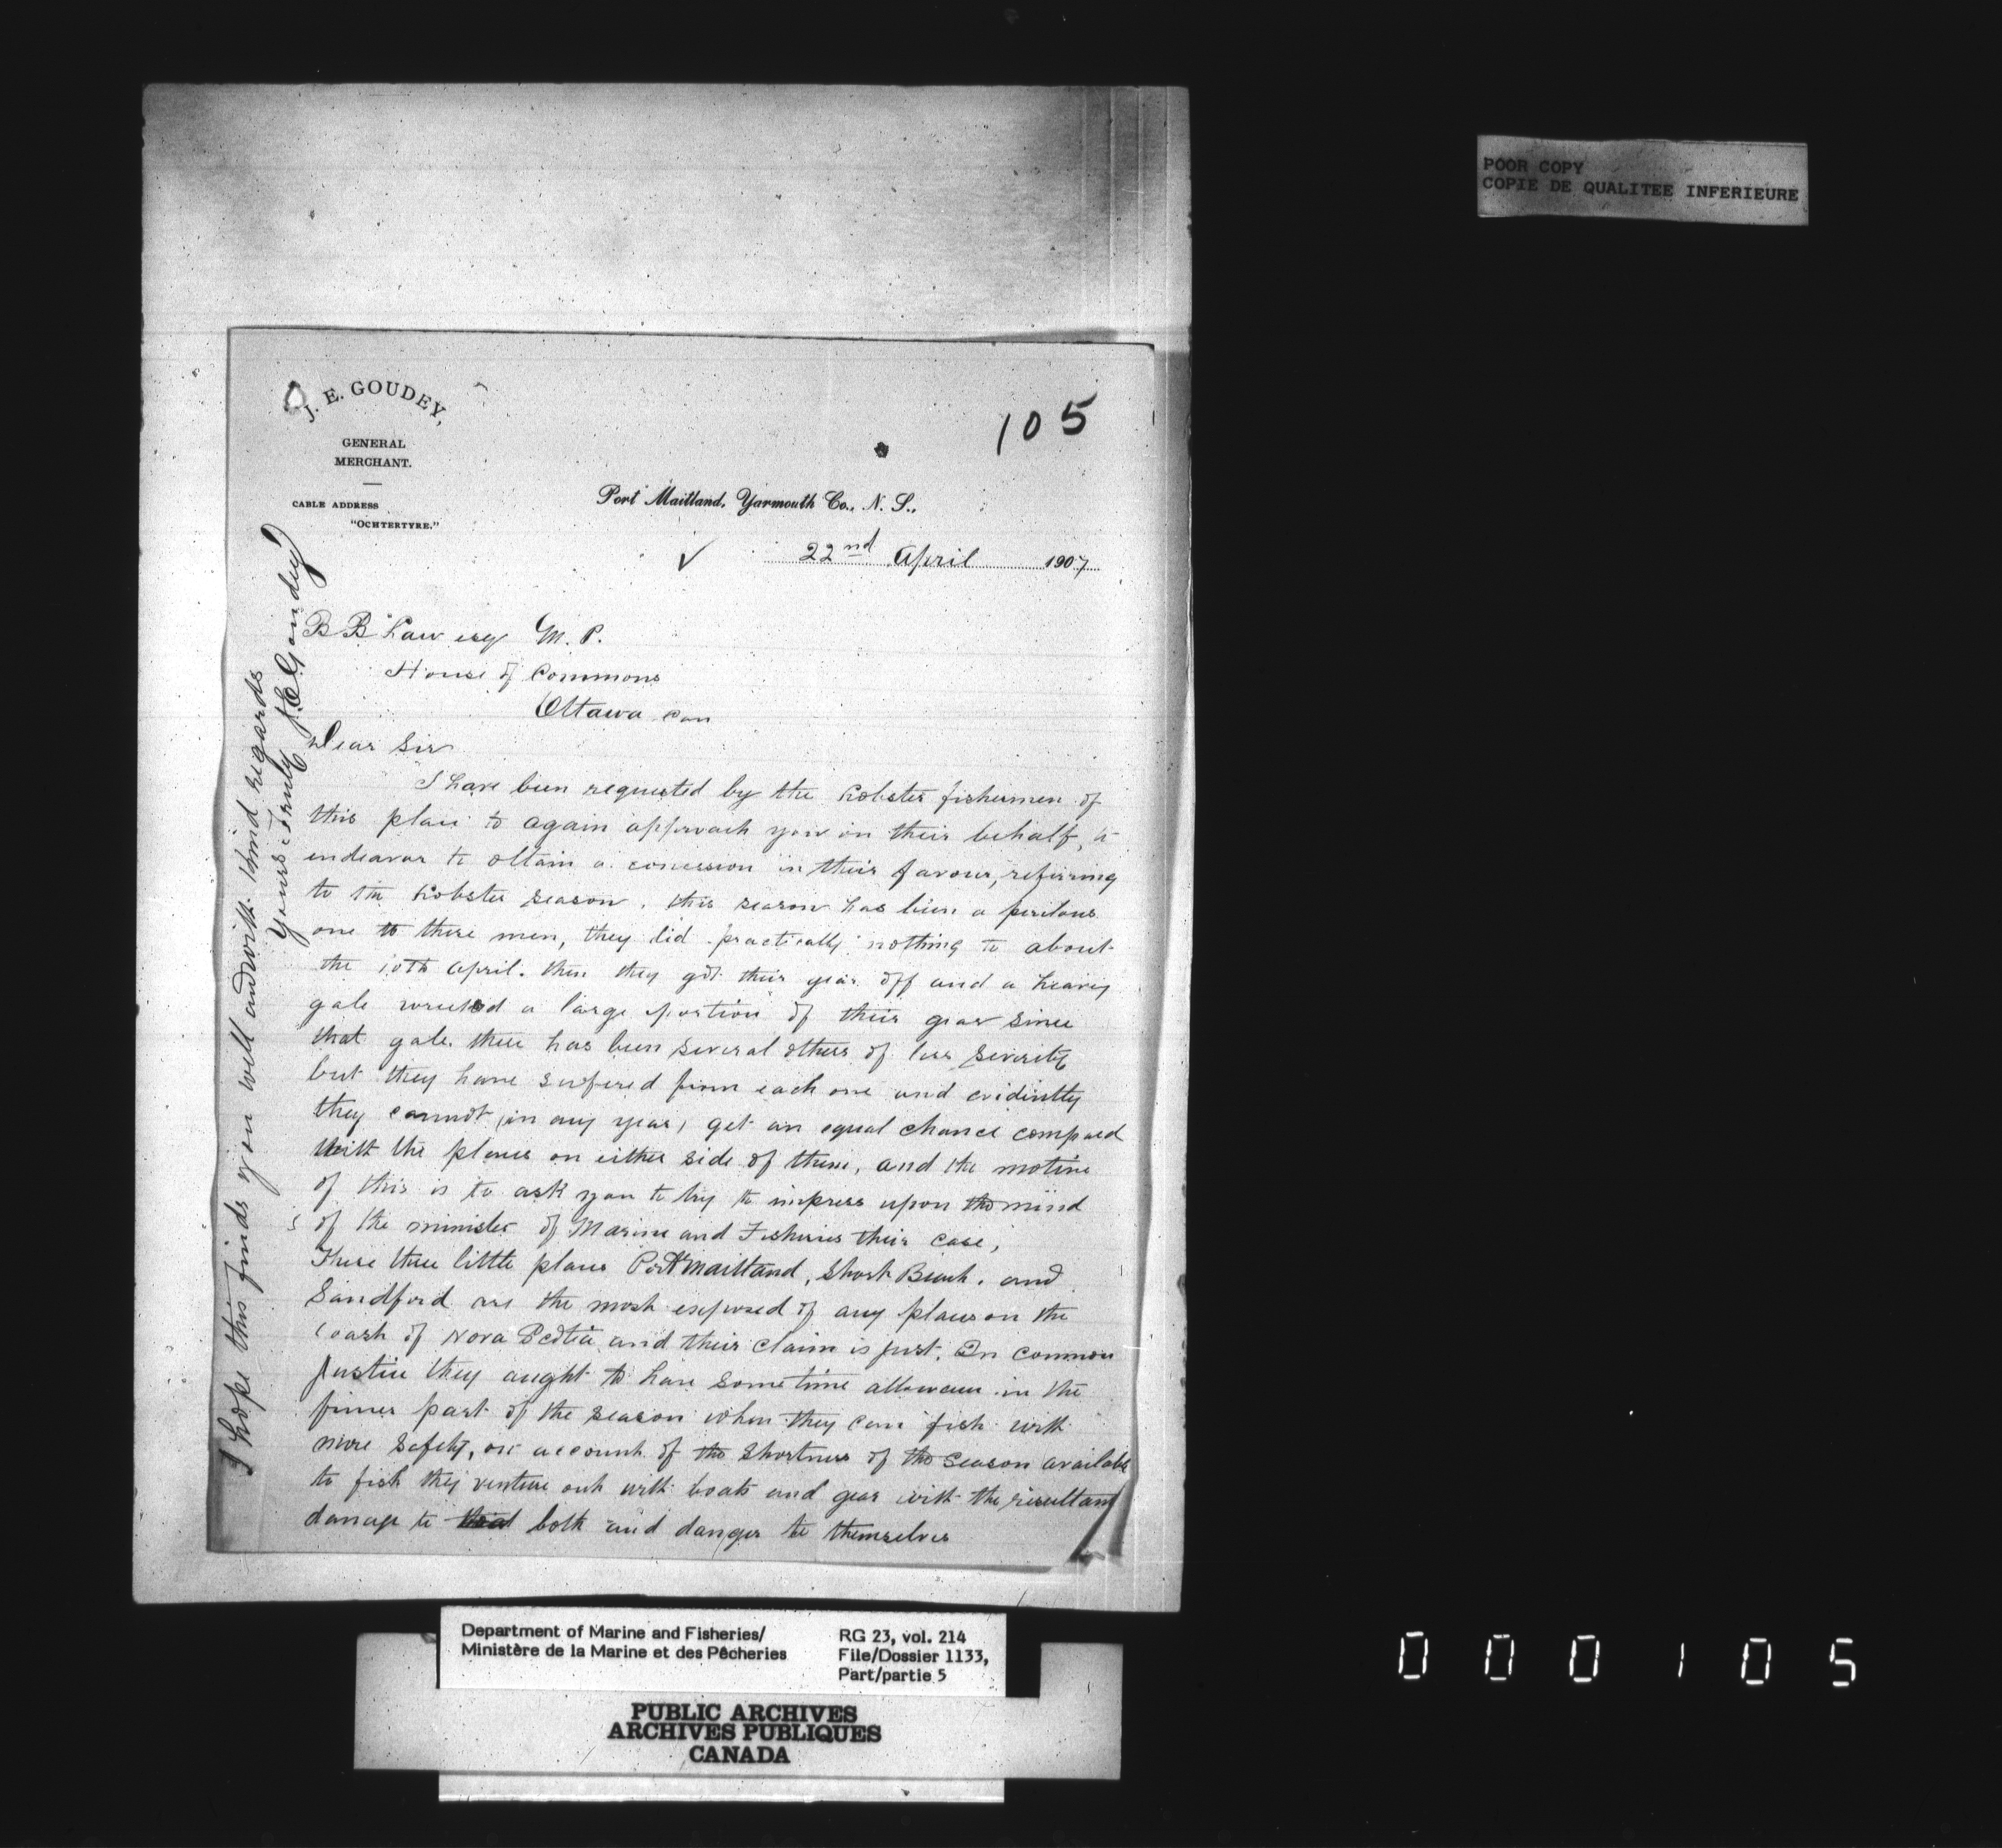 J. E. GOUDEY,
GENERAL
MERCHANT.
CABLE ADDRESS
"OCHTERTYRE."
105
Port Maitland, Yarmouth Co., N. S.,
22nd April 1907
B B Law esq M. P.
House of Commons
Ottawa Can
Dear Sir
I have been requested by the Lobster fishermen of
this place to again approach you on their behalf, to
endeavor to obtain a concession in their favour, refering
to the Lobster season. this season has been a perilous
one to these men, they did practically nothing to about
the 10th April. then they got their gear off and a heavy
gale wrecked a large portion of their gear since
that gale there has been several others of less severity
but they have suffered from each one and evidintly
they cannot, in any year, get an equal chance compared
with the places on either side of them, and the motive
of this is to ask you to try to impress upon the mind
of the minister of Marine and Fisheries their case,
These three little places Port Maitland, Short Beach, and
Sandford are the most exposed of any places on the
coast of Nova Scotia and their claim is just. In common
justice they aught to have some time allowance in the
finer part of the season when they can fish with
more safety, on account of the shortness of the season available
to fish they venture out with boats and gear with the resultant
damage to both and danger to themselves
I hope this finds you well and with kind regards
Yours Truly J. E. Goudey
POOR COPY
COPIE DE QUALITEE INFERIEURE
Department of Marine and Fisheries/
Ministère de la Marine et des Pêcheries
RG 23, vol. 214
File/Dossier 1133,
Part/partie 5
PUBLIC ARCHIVES
ARCHIVES PUBLIQUES
CANADA
000105